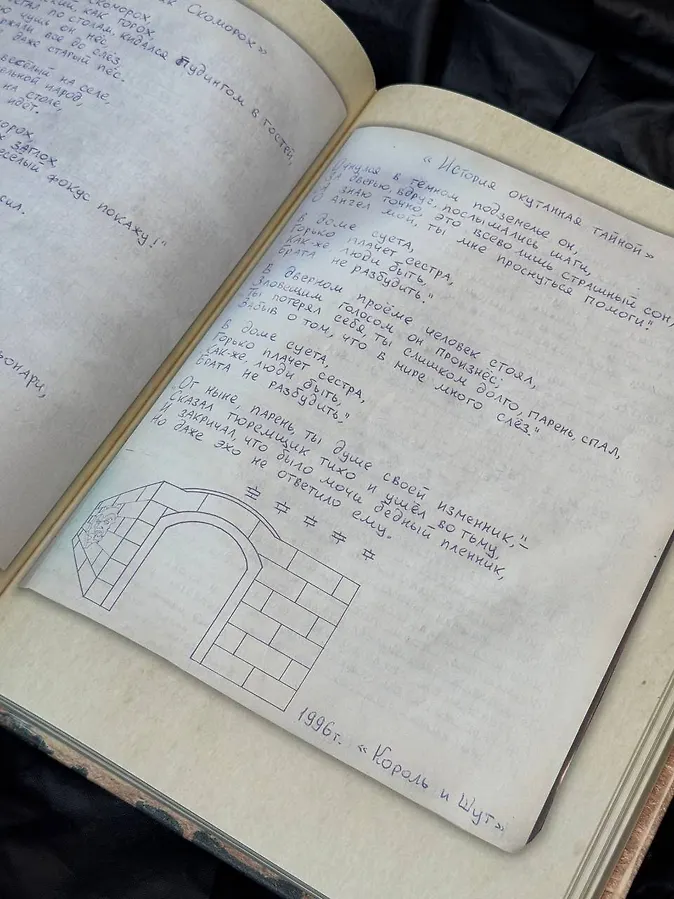 Скоморох»
Скоморох,
как горох
по столам кидался пудингом в гостей,
чушь он нёс.
вас до слёз
даже старый пёс.
весёлый на селе,
народ,
на столе,
идёт.
заглох
весёлый фокус покажу!"
« История окутанная тайной»
в тёмном подземелье он,
дверью, вдруг, послышались шаги,
знаю точно, это всего лишь страшный сон,
О ангел мой, ты мне проснуться помоги."
В доме суета,
Горько плачет сестра,
Как-же, люди быть,
Брата не разбудить."
В дверном проёме человек стоял,
Зловещим голосом он произнёс:
Ты потерял себя, ты слишком долго, парень, спал,
Забыв о том, что в мире много слёз."
В доме суета,
Горько плачет сестра,
Как-же, люди быть,
Брата не разбудить,"
От ныне, парень, ты душе своей изменник,"-
Сказал тюремщик тихо и ушёл во тьму,
И закричал, что было мочи бедный пленник,
Но даже эхо не ответило ему.
1996г. «Король и Шут»